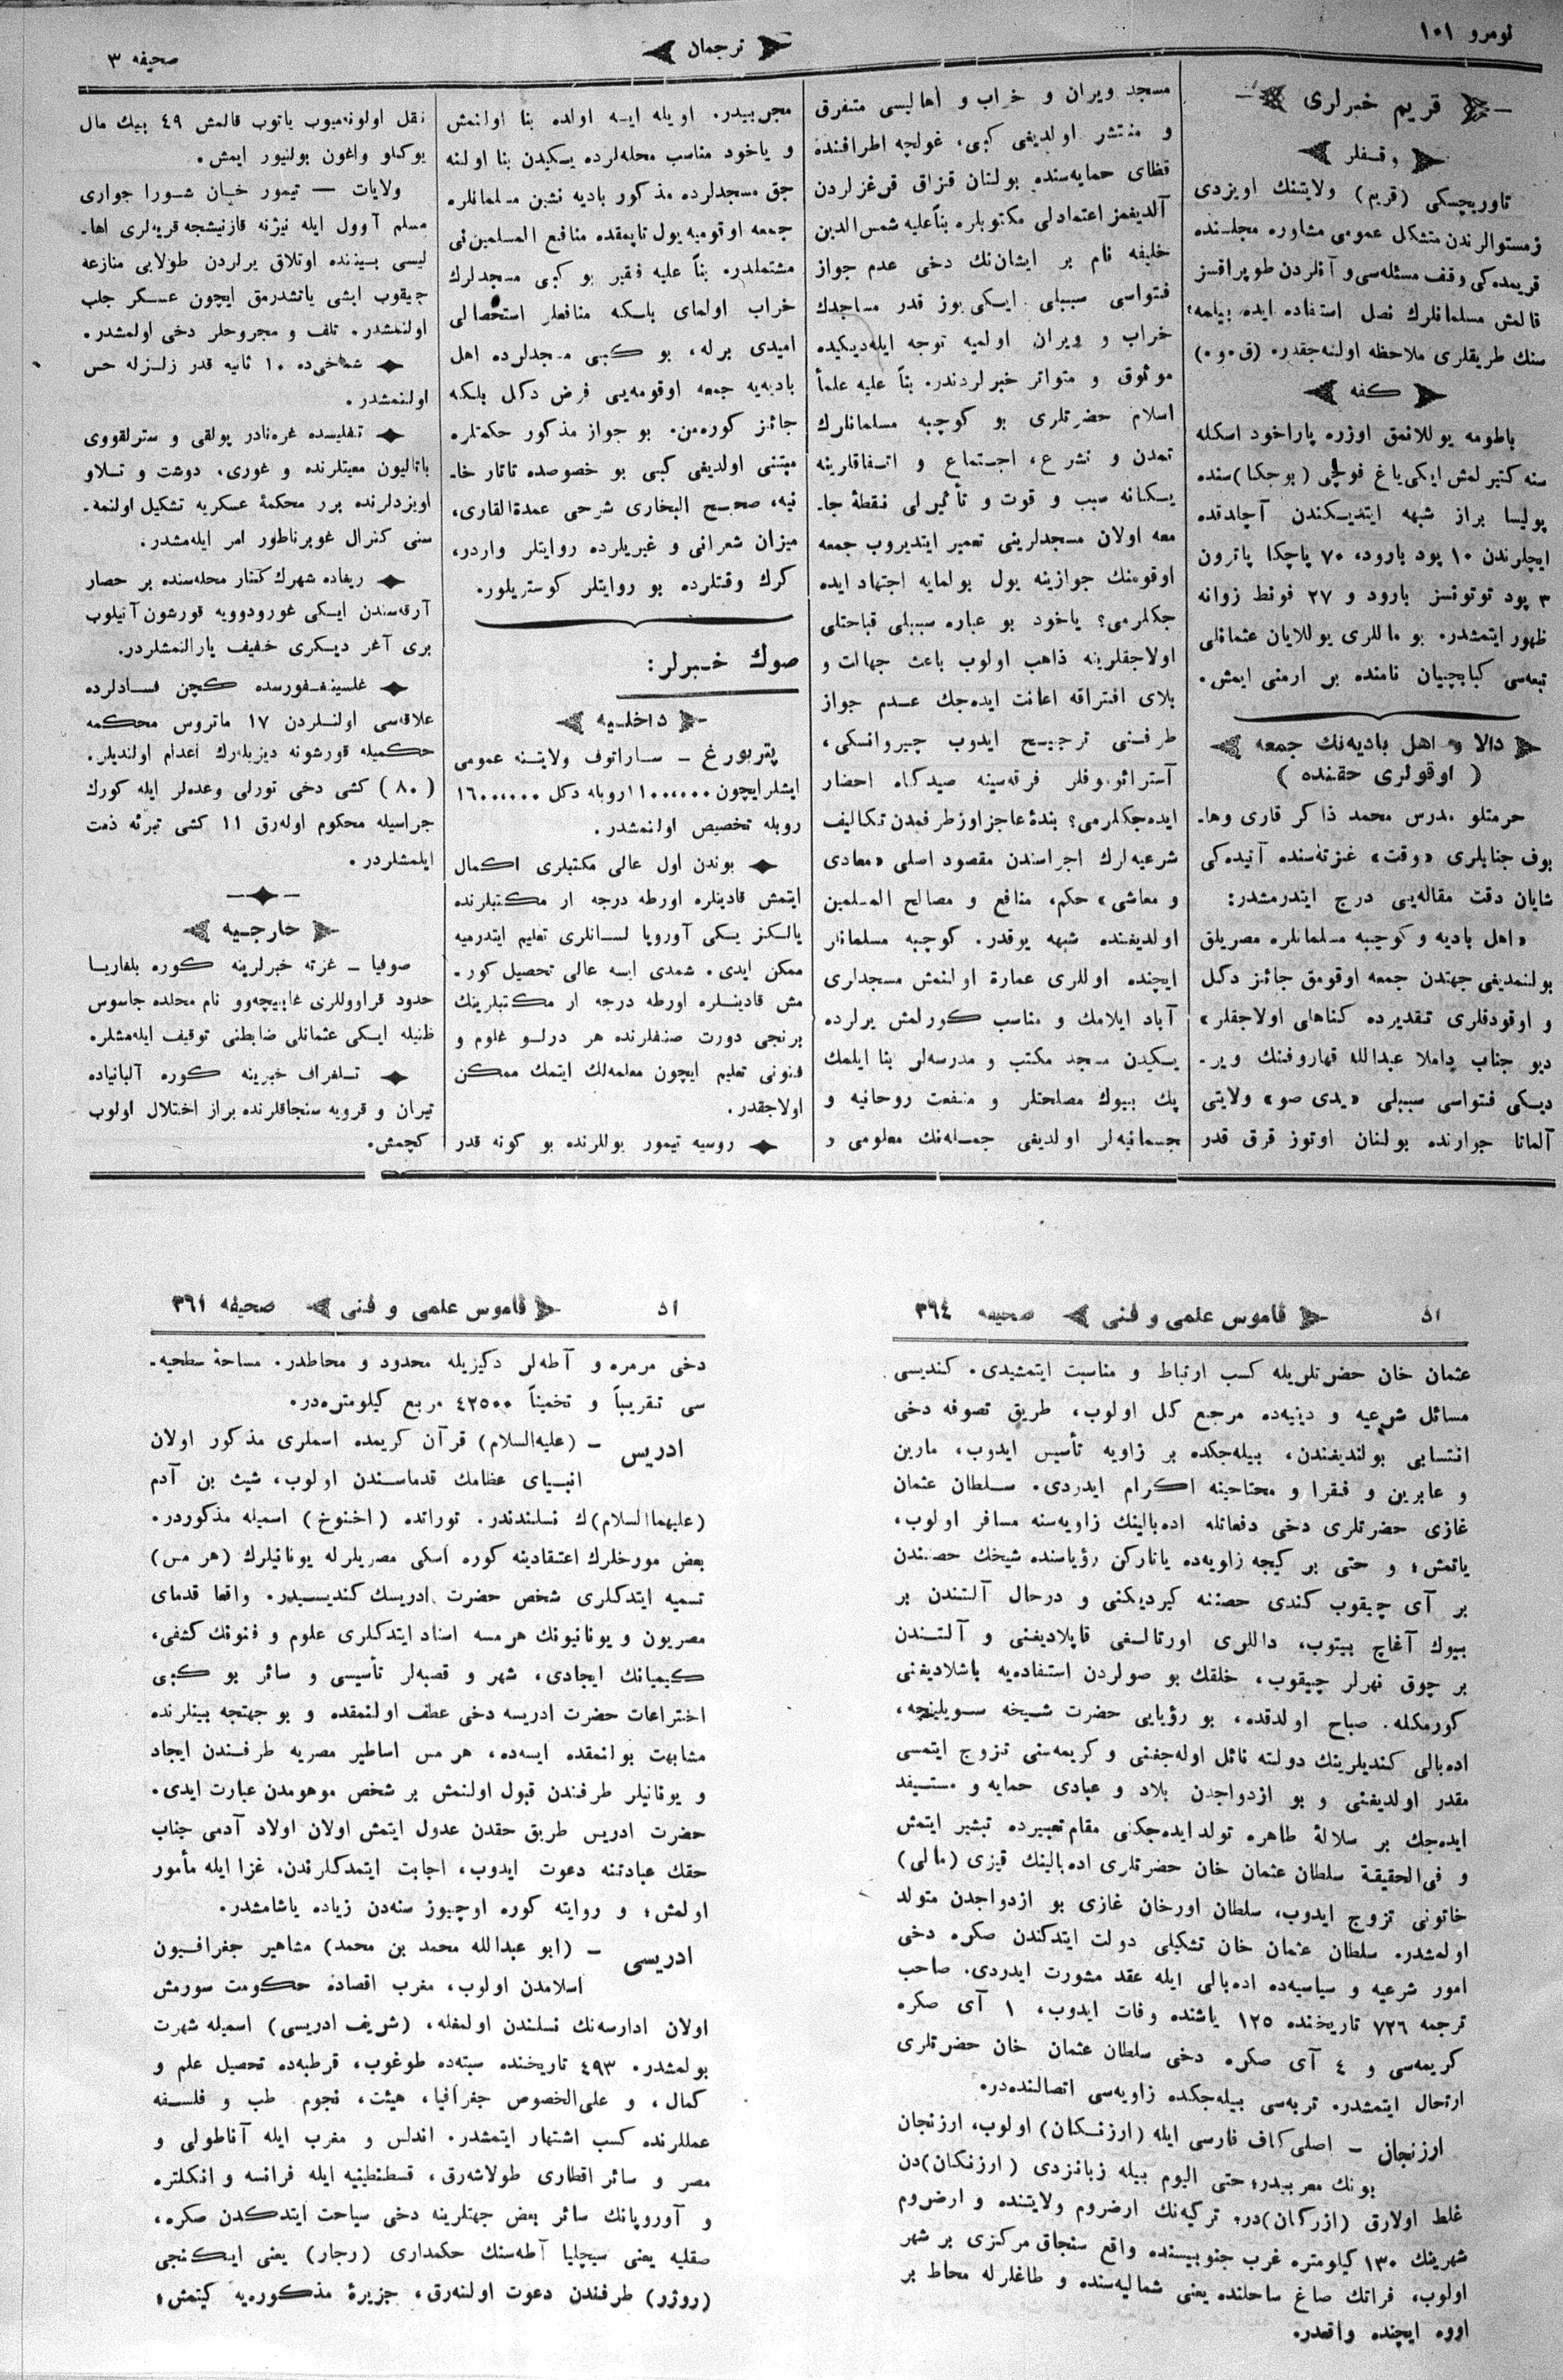 نومرو ١٠١
ترجمان
صحیفه ٣
قریم خبرلری
وقفلر
تاوریچسكی (قریم) ولایتنك اویزدی
زمستوالرندن متشكل عمومی مشاوره مجلسنده
قریمده كی وقف مسئله‌سی و آنلردن طوپراقسز
قالمش مسلمانلرك نصل استفاده ایده بیلمه‌
سنك طریقلری ملاحظه اولنه‌جقدره (ق٠و٠)
كفه
باطومه یوللانمق اوزره پاراخود اسكله
سنه كتیرلمش ایكی یاغ فوچی (بوچكا) سنده
پولیسا براز شبهه ایتدیكندن آچلدقده
ایچلرندن ١٠ پود بارود، ٧٠ پاچكا پاترون
٣ پود توتونسز بارود و ٢٧ فونط زوانه
ظهور ایتمشدر. بو ماللری یوللایان عثمانلی
تبعه‌سی كبابچیان نامنده بر ارمنی ایمش.
دالا و اهل بادیه‌نك جمعه
( اوقولری حقنده )
حرمتلو مدرس محمد ذاكر قاری وها-
بوف جنابلری «وقت» غزته‌سنده آتیده‌كی
شایان دقت مقاله‌یی درج ایتدرمشدر:
«اهل بادیه و كوچبه مسلمانلره مصریلق
بولنمدیغی جهتدن جمعه اوقومق جائز دكل
و اوقودقلری تقدیرده كناهلی اولاجقلر»
دیو جناب داملا عبدالله قهاروفنك ویر-
دیكی فتواسی سببلی «یدی صو» ولایتی
آلماتا جوارنده بولنان اوتوز قرق قدر
مسجد ویران و خراب و اهالیسی متفرق
و منتشر اولدیغی كبی، غولجه اطرافنده
قظای حمایه‌سنده بولنان قزاق قرغزلردن
آلدیغمز اعتمادلی مكتوبلره بناً علیه شمس الدین
خلیفه نام بر ایشان‌نك دخی عدم جواز
فتواسی سببلی ایكی یوز قدر مساجدك
خراب و ویران اولمیه توجه ایله‌دیكیده
موثوق و متواتر خبرلردندر. بناً علیه علمأ
اسلام حضرتلری بو كوچبه مسلمانلرك
تمدن و تشرع، اجتماع و اتفاقلرینه
یكانه سبب و قوت و تأثیرلی نقطهٔ جا-
معه اولان مسجدلرینی تعمیر ایتدیروب جمعه
اوقومنك جوازینه یول بولمایه اجتهاد ایده
جكلرمی؟ یاخود بو عباره سببلی قباحتلی
اولاجقلرینه ذاهب اولوب باعث جهالت و
بلای افتراقه اعانت ایده‌جك عدم جواز
طرفنی ترجیح ایدوب چیروانسكی،
آسترائوموفلر فرقه‌سینه صیدكاه احضار
ایده‌جكلرمی؟ بندهٔ عاجز اوز طرفمدن تكالیف
شرعیه‌لرك اجراسندن مقصود اصلی «معادی
و معاشی» حكم، منافع و مصالح المسلمین
اولدیغنده شبهه یوقدر. كوچبه مسلمانلر
ایچنده اوللری عمارة اولنمش مسجدلری
آباد ایلامك و مناسب كورلمش یرلرده
یكیدن مسجد مكتب و مدرسه‌لر بنا ایلمك
پك بیوك مصلحتلر و منفعت روحانیه و
جسمانیه‌لر اولدیغی جمله‌نك معلومی و
مجربیدر. اویله ایسه اولده بنا اولنمش
و یاخود مناسب محله‌لرده یكیدن بنا اولنه
جق مسجدلرده مذكور بادیه نشین مسلمانلره
جمعه اوقومیه یول تاپمقده منافع المسلمین‌نی
مشتملدر. بناً علیه فقیر بو كبی مسجدلرك
خراب اولمای بلكه منافعلر استحصالی
امیدی برله، بو كبی مسجدلرده اهل
بادیه‌یه جمعه اوقومه‌یی فرض دكل بلكه
جائز كوره‌من. بو جواز مذكور حكمتلره
مبتنی اولدیغی كبی بو خصوصده تاتار خا-
نیه، صحیح البخاری شرحی عمدة القاری،
میزان شعرانی و غیریلرده روایتلر واردر،
كرك وقتلرده بو روایتلر كوستریلور.
صوك خبرلر:
داخلیه
پتربورغ — ساراتوف ولایتنه عمومی
ایشلر ایچون ١١٠٠٠٠٠ روبله دكل ١٦٠٠٠٠٠
روبله تخصیص اولنمشدر.
بوندن اول عالی مكتبلری اكمال
ایتمش قادینلره اورطه درجه ار مكتبلرنده
یالكز یكی آوروپا لسانلری تعلیم ایتدرمیه
ممكن ایدی. شمدی ایسه عالی تحصیل كور-
مش قادینلره اورطه درجه ار مكتبلرینك
برنجی دورت صنفلرنده هر درلو علوم و
فنونی تعلیم ایچون معلمه‌لك ایتمك ممكن
اولاجقدر.
روسیه تیمور یوللرنده بو كونه قدر
نقل اولونمیوب یاتوب قالمش ٤٩ بیك مال
یوكلو واغون بولنیور ایمش.
ولایات — تیمور خان شورا جواری
مسلم آوول ایله نیژنه قازنیشجه قریه‌لری اها-
لیسی بیننده اوتلاق یرلردن طولایی منازعه
چیقوب ایشی یاتشدرمق ایچون عسكر جلب
اولنمشدر. تلف و مجروحلر دخی اولمشدر.
شماخی‌ده ١٠ ثانیه قدر زلزله حس
اولنمشدر.
تفلیسده غره‌نادر پولقی و سترلقووی
باتالیون معیتلرنده و غوری، دوشت و تلاو
اویزدلرنده برر محكمهٔ عسكریه تشكیل اولنمه-
سنی كنرال غوبرناطور امر ایله‌مشدر.
ریغاده شهرك كنار محله‌سنده بر حصار
آرقه‌سندن ایكی غورودوویه قورشون آتیلوب
بری آغر دیكری خفیف یارالنمشلردر.
غلسینغفورسده كچن فسادلرده
علاقه‌سی اولنلردن ١٧ ماتروس محكمه
حكمیله قورشونه دیزیله‌رك اعدام اولندیلر.
(٨٠) كشی دخی تورلی وعده‌لر ایله كورك
جزاسیله محكوم اوله‌رق ١١ كشی تبرئه ذمت
ایلمشلردر.
خارجیه
صوفیا — غزته خبرلرینه كوره بلغاریا
حدود قراووللری غابیچه‌وو نام محلده جاسوس
ظنیله ایكی عثمانلی ضابطنی توقیف ایله‌مشلر.
تلغراف خبرینه كوره آلبانیاده
تیران و قرویه سنجاقلرنده براز اختلال اولوب
كچمش.
اد
قاموس علمی و فنی
صحیفه ٣٦٤
عثمان خان حضرتلریله كسب ارتباط و مناسبت ایتمشیدی. كندیسی
مسائل شرعیه و دینیه‌ده مرجع كل اولوب، طریق تصوفه دخی
انتسابی بولندیغندن، بیله‌جكده بر زاویه تأسیس ایدوب، مارین
و عابرین و فقرا و محتاجینه اكرام ایدردی. سلطان عثمان
غازی حضرتلری دخی دفعاتله اده‌بالینك زاویه‌سنه مسافر اولوب،
یاتمش؛ و حتی بر كیجه زاویه‌ده یاتاركن رؤیاسنده شیخك حصنندن
بر آی چیقوب كندی حصننه كیردیكنی و درحال آلتندن بر
بیوك آغاج بیتوب، داللری اورتالغی قاپلادیغنی و آلتندن
بر چوق نهرلر چیقوب، خلقك بو صولردن استفاده‌یه باشلادیغنی
كورمكله. صباح اولدقده، بو رؤیایی حضرت شیخه سویلینجه،
اده‌بالی كندیلرینك دولته نائل اوله‌جغنی و كریمه‌سنی تزوج ایتمسی
مقدر اولدیغنی و بو ازدواجدن بلاد و عبادی حمایه و مستفید
ایده‌جك بر سلالهٔ طاهره تولد ایده‌جكنی مقام تعبیرده تبشیر ایتمش
و فی‌الحقیقة سلطان عثمان خان حضرتلری اده‌بالینك قیزی (مالی)
خاتونی تزوج ایدوب، سلطان اورخان غازی بو ازدواجدن متولد
اولمشدر. سلطان عثمان خان تشكیلی دولت ایتدكدن صكره دخی
امور شرعیه و سیاسیه‌ده اده‌بالی ایله عقد مشورت ایدردی. صاحب
ترجمه ٧٢٦ تاریخنده ١٢٥ یاشنده وفات ایدوب، ١ آی صكره
كریمه‌سی و ٤ آی صكره دخی سلطان عثمان خان حضرتلری
ارتحال ایتمشدر. تربه‌سی بیله‌جكده زاویه‌سی اتصالنده‌در.
ارزنجان — اصلی كاف فارسی ایله (ارزنكان) اولوب، ارزنجان
بونك معربیدر؛ حتی الیوم بیله زبانزدی (ارزنكان)دن
غلط اولارق (ازركان)در؛ تركیه‌نك ارضروم ولایتنده و ارضروم
شهرینك ١٣٠ كیلومتره غرب جنوبیسنده واقع سنجاق مركزی بر شهر
اولوب، فراتك صاغ ساحلنده یعنی شمالیه‌سنده و طاغلرله محاط بر
اووه ایچنده واقعدر.
اد
قاموس علمی و فنی
صحیفه ٣٦١
دخی مرمره و آطه‌لر دكیزیله محدود و محاطدر. مساحهٔ سطحیه-
سی تقریباً و تخمیناً ٤٢٥٠٠ مربع كیلومتره‌در.
ادریس — (علیه‌السلام) قرآن كریمده اسملری مذكور اولان
انبیای عظامك قدماسندن اولوب، شیث بن آدم
(علیهماالسلام)ك نسلندندر. توراتده (اخنوخ) اسمیله مذكوردر.
بعض مورخلرك اعتقادینه كوره اسكی مصریلرله یونانیلرك (هرمس)
تسمیه ایتدكلری شخص حضرت ادریسك كندیسیدر. واقعا قدمای
مصریون و یونانیونك هرمسه اسناد ایتدكلری علوم و فنونك كشفی،
كیمیانك ایجادی، شهر و قصبه‌لر تأسیسی و سائر بو كبی
اختراعات حضرت ادریسه دخی عطف اولنمقده و بو جهتجه بینلرنده
مشابهت بولنمقده ایسه‌ده، هرمس اساطیر مصریه طرفندن ایجاد
و یونانیلر طرفندن قبول اولنمش بر شخص موهومدن عبارت ایدی.
حضرت ادریس طریق حقدن عدول ایتمش اولان اولاد آدمی جناب
حقك عبادتنه دعوت ایدوب، اجابت ایتمدكلرندن، غزا ایله مأمور
اولمش؛ و روایته كوره اوچیوز سنه‌دن زیاده یاشامشدر.
ادریسی — (ابو عبدالله محمد بن محمد) مشاهیر جغرافیون
اسلامدن اولوب، مغرب اقصاده حكومت سورمش
اولان ادارسه‌نك نسلندن اولمغله، (شریف ادریسی) اسمیله شهرت
بولمشدر. ٤٩٣ تاریخنده سبته‌ده طوغوب، قرطبه‌ده تحصیل علم و
كمال، و علی‌الخصوص جغرافیا، هیئت، نجوم طب و فلسفه
عمللرنده كسب اشتهار ایتمشدر. اندلس و مغرب ایله آناطولی و
مصر و سائر اقطاری طولاشه‌رق، قسطنطینیه ایله فرانسه و انكلتره
و آوروپانك سائر بعض جهتلرینه دخی سیاحت ایتدكدن صكره،
صقلیه یعنی سیچلیا آطه‌سنك حكمداری (رجار) یعنی ایكنجی
(روژر) طرفندن دعوت اولنه‌رق، جزیرهٔ مذكوره‌یه كیتمش؛